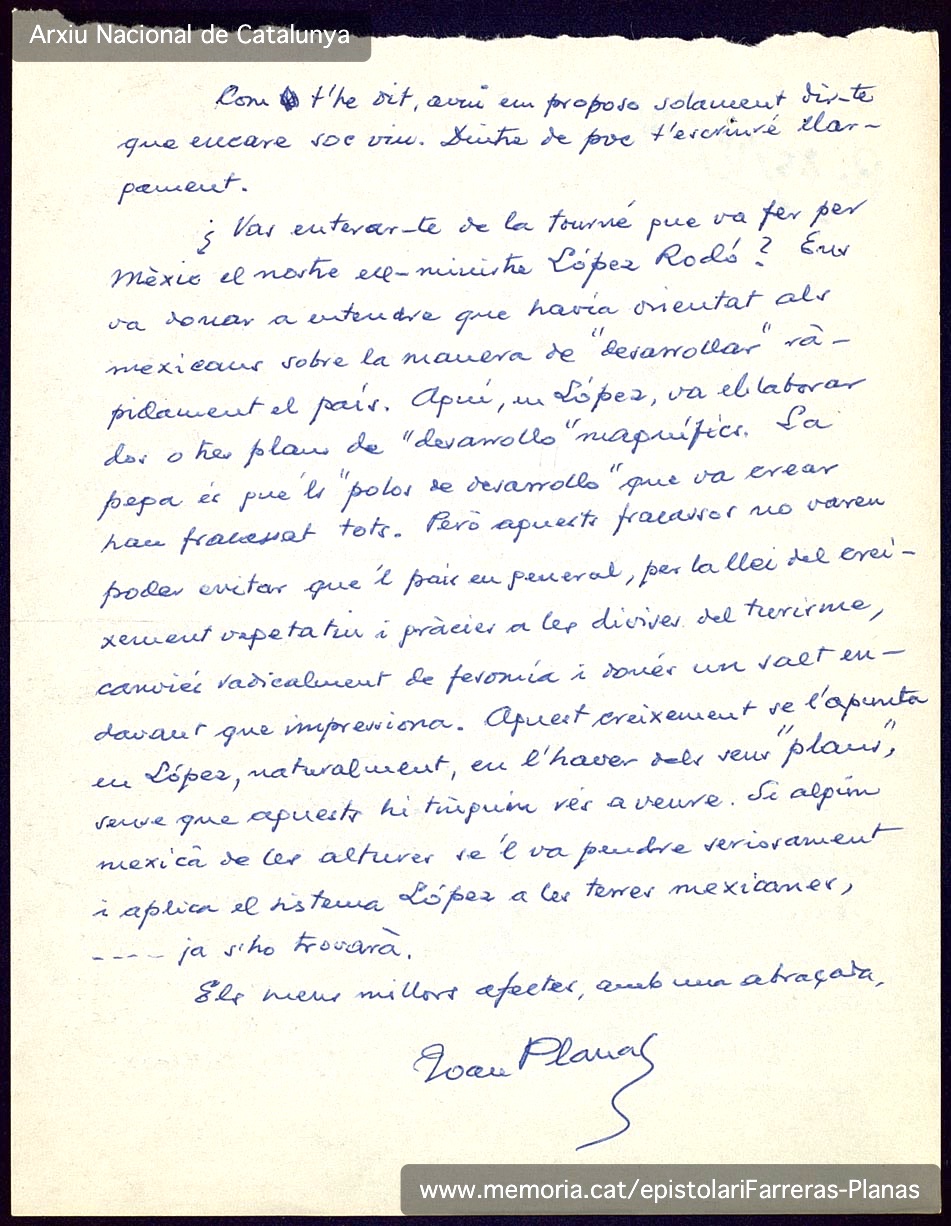 Arxiu Nacional de Catalunya
Com t'he dit, avui em proposo solament dir-te
que encare soc viu. Dintre de poc t'escriuré llar-
gament.
¿ Vas enterar-te de la tourné que va fer per
Mèxic el nostre ex-ministre López Rodó? Ens
va donar a entendre que havia orientat als
mexicans sobre la manera de "desarrollar" rà-
pidament el país. Aquí, en López, va el·laborar
dos o tres plans de "desarrollo" magnífics. La
pega és que'ls "polos de desarrollo" que va crear
han fracassat tots. Però aquests fracassos no varen
poder evitar que'l país en general, per la llei del crei-
xement vegetatiu i gràcies a les divises del turisme,
canviés radicalment de fesomía i donés un salt en-
davant que impressiona. Aquest creixement se l'apunta
en López, naturalment, en l'haver dels seus "plans",
sense que aquests hi tinguin rés a veure. Si algún
mexicà de les altures se'l va pendre seriosament
i aplica el sistema López a les terres mexicanes,
---- ja s'ho trovarà.
Els meus millors afectes, amb una abraçada,
Joan Planas
www.memoria.cat/epistolariFarreras-Planas